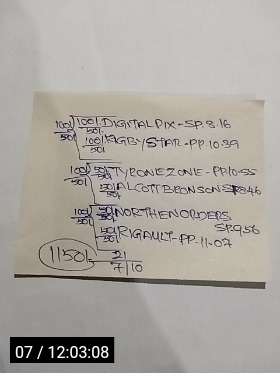 100/50/ 100/50/ DIGITAL PIX-SP.8.16
100/50/ RIGBY STAR-PP.10.39
100/50/ 50/50/ TYRONE ZONE-PP.10.55
50/50/ ALCOTT BRONSON SP.8.46
100/50/ 50/50/ NORTHEN ORDERS
SP.9.56
50/50/ RIGAULT-PP-11-07
1150/- 21
7/10
07 / 12:03:08